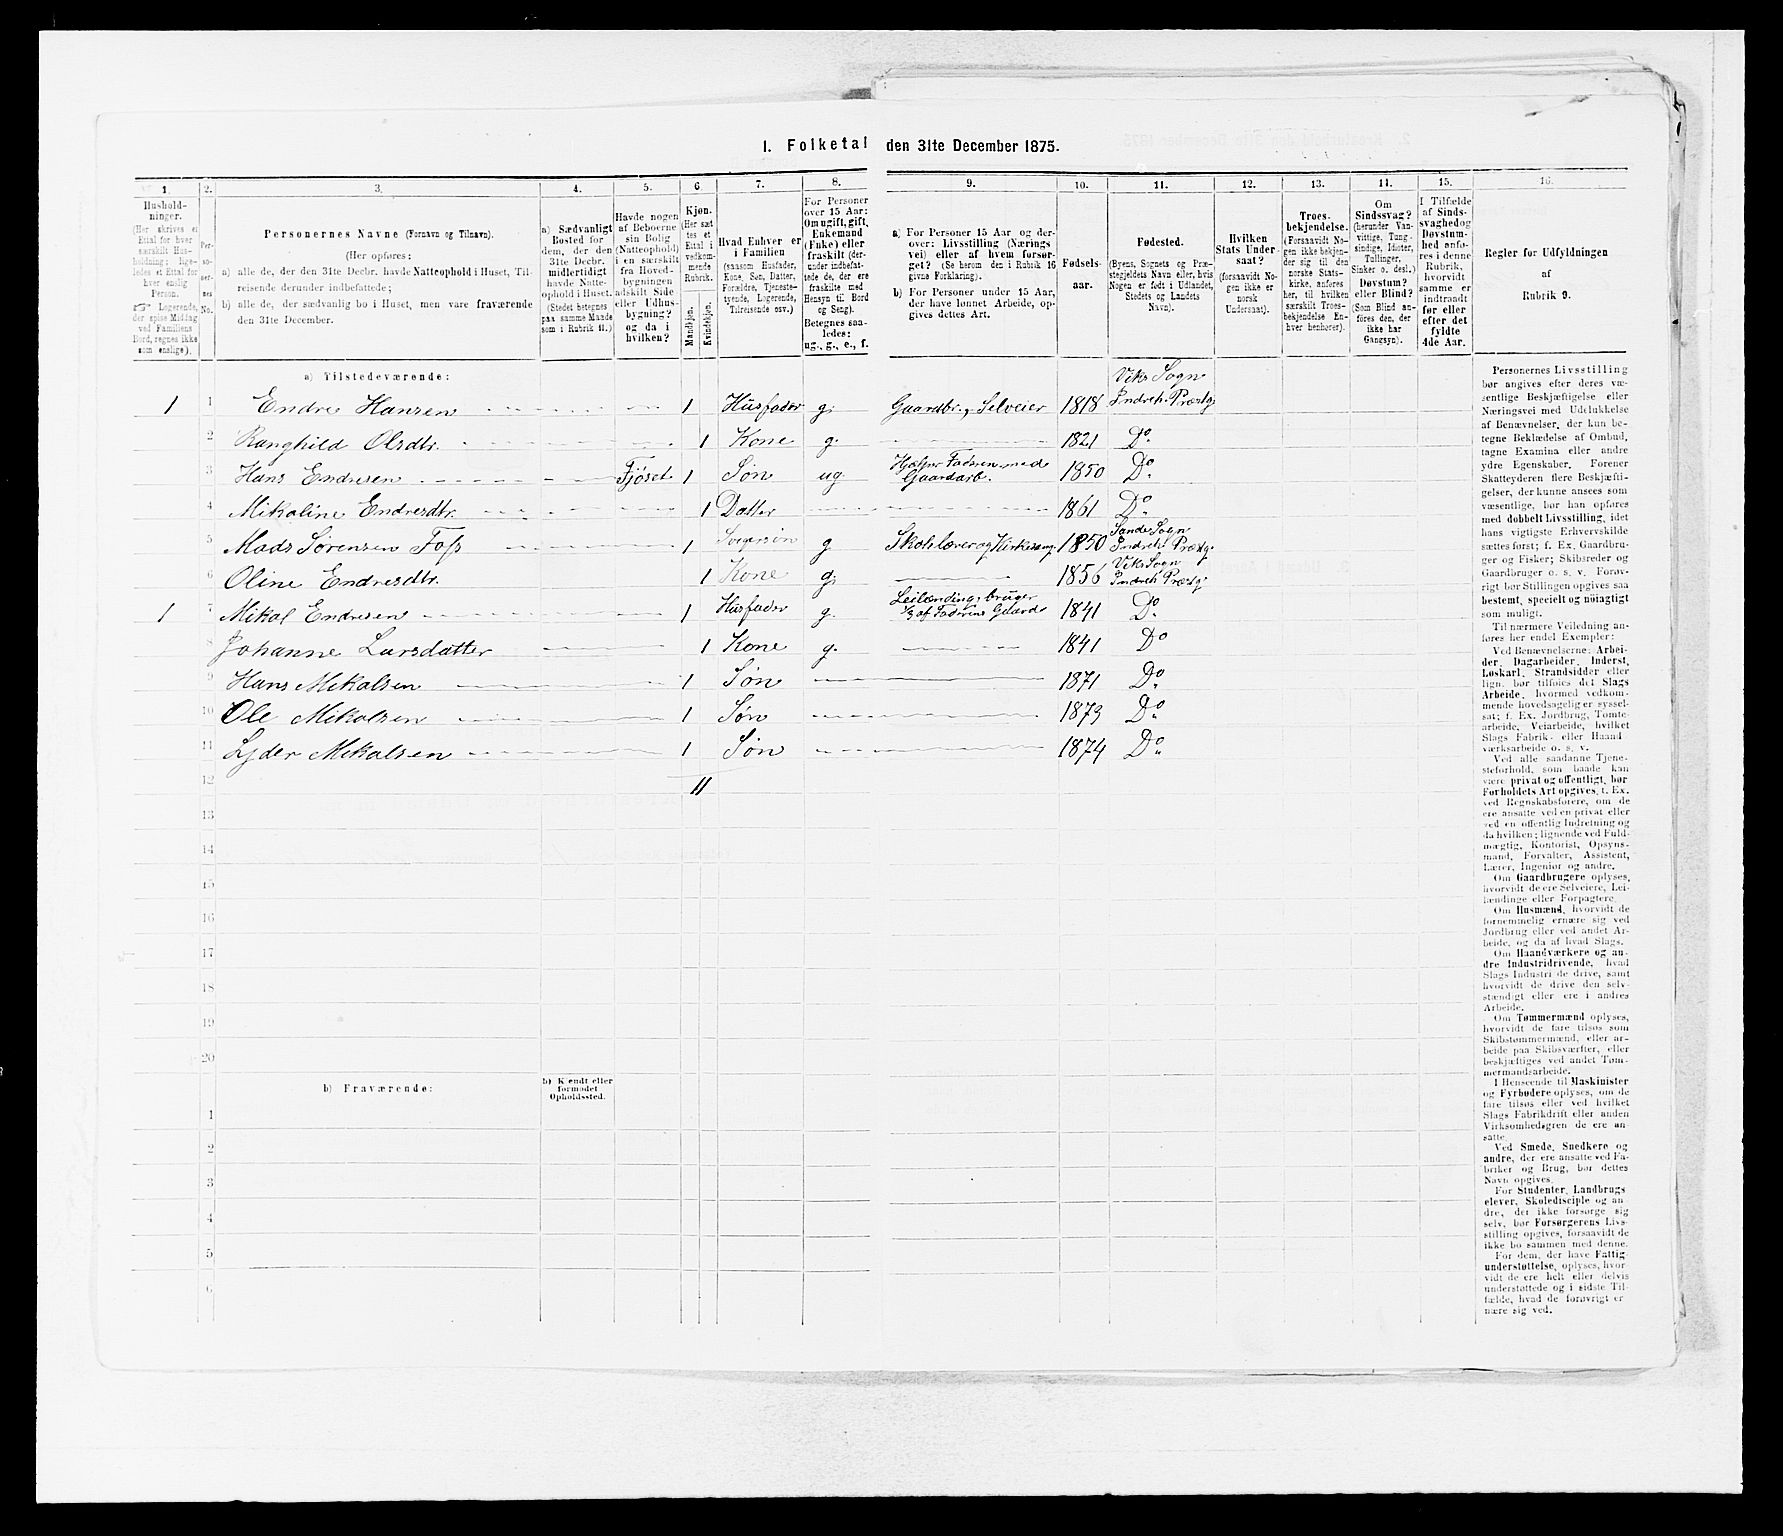 I. Folketal den 31te December 1875.
1. 2. 3. 4. 5. 6. 7. 8. 9. 10. 11. 12. 13. 14. 15. 16.
Hushold-
ninger.
(Her skrives et
Ettal for hver
særskilt Hus-
holdning; lige-
ledes et Ettal for
hver enslig
Person.
☞ Logerende,
der spise Middag
ved Familiens
Bord, regnes ikke
som enslige).
Per-
so-
ner-
nes
No.
Personernes Navne (Fornavn og Tilnavn).
(Her opføres:
a) alle de, der den 31te Decbr. havde Natteophold i Huset, Til-
reisende derunder indbefattede;
b) alle de, der sædvanlig bo i Huset, men vare fraværende
den 31te December.
a) Sædvanligt
Bosted for
dem, der den
31te Decbr.
midlertidigt
havde Natte-
ophold i Huset.
(Stedet betegnes
paa samme Maade
som i Rubrik 11.)
Havde nogen
af Beboerne
sin Bolig
(Natteophold)
i en særskilt
fra Hoved-
bygningen
adskilt Side
eller Udhus-
bygning?
og da i
hvilken?
Kjøn.
(Her sæt
tes et
Ettal i
vedkom-
mende
Rubrik.
Mandkjøn.
Kvindekjøn.
Hvad Enhver er
i Familien
(saasom Husfader,
Kone, Søn, Datter,
Forældre, Tjeneste-
tyende, Logerende,
Tilreisende osv.)
For Personer
over 15 Aar:
Om ugift, gift,
Enkemand
(Enke) eller
fraskilt (der-
under indbefat-
tede de, der ere
fraskilte med
Hensyn til Bord
og Seng).
Betegnes saa-
ledes:
ug., g., e., f.
a) For Personer 15 Aar og der-
over: Livsstilling (Nærings
vei) eller af hvem forsør-
get? (Se herom den i Rubrik 16
givne Forklaring).
b) For Personer under 15 Aar,
der have lønnet Arbeide, op-
gives dettes Art.
Fødsels-
aar.
Fødested.
(Byens, Sognets og Præ-
stegjeldets Navn eller, hvis
Nogen er født i Udlandet,
Stedets og Landets
Navn).
Hvilken
Stats Under-
saat?
(forsaavidt No-
gen ikke er
norsk
Undersaat).
Troes-
bekjendelse.
(Forsaavidt No-
gen ikke bekjen-
der sig til den
norske Stats-
kirke, anføres
her, til hvilken
særskilt Troes-
bekjendelse En-
hver henhører).
Om
Sindssvag?
(herunder Van-
vittige, Tung-
sindige, Idioter,
Tullinger,
Sinker o. desl.)
Døvstum?
eller Blind?
(Som Blind an-
føres den, der
ikke har
Gangsyn).
I Tilfælde
af Sinds-
svaghed og
Døvstum-
hed anfø-
res i denne
Rubrik,
hvorvidt
samme er
indtraadt
før eller
efter det
fyldte
4de Aar.
Regler for Udfyldningen
af
Rubrik 9.
a) Tilstedeværende:
1 1 Endre Hansen 1 Husfader g. Gaardbr., Selveier 1818 Viks Sogn Indreh. Præstg.
2 Ranghild Olsdtr. 1 Kone g. 1821 Do
3 Hans Endresen Fjøset 1 Søn ug Hjælper Faderen med Gaardarb. 1850 Do
4 Mikoline Endresdtr. 1 Datter 1861 Do
5 Mads Sørensen Foss 1 Svigersøn g Skolelærer og Kirkesang. 1850 Sande Sogn Indreh. Præstg.
6 Oline Endresdtr. 1 Kone g. 1856 Viks Sogn Indreh Præstg.
1 7 Mikal Endresen 1 Husfader g. Leilændingsbruger 1/3 af Faderens Gaard 1841 Do
8 Johanne Larsdatter 1 Kone g. 1841 Do
9 Hans Mikalsen 1 Søn 1871 Do
10 Ole Mikalsen 1 Søn 1873 Do
11 Lyder Mikalsen 1 Søn 1874 Do
12 11
13
14
15
16
17
18
19
20
b) Fraværende:
b) Kjendt eller
formodet
Opholdssted.
1
2
3
4
5
6
Personernes Livsstilling
bør angives efter deres væ-
sentlige Beskjæftigelse eller
Næringsvei med Udelukkelse
af Benævnelser, der kun be-
tegne Beklædelse af Ombud,
tagne Examina eller andre
ydre Egenskaber. Forener
Skatteyderen flere Beskjæfti-
gelser, der kunne ansees som
væsentlige, bør han opføres
med dobbelt Livsstilling, idet
hans vigtigste Erhvervskilde
sættes først; f. Ex. Gaardbru-
ger og Fisker; Skibsreder og
Gaardbruger o. s. v. Forøv-
rigt bør Stillingen opgives saa
bestemt, specielt og nøiagtigt
som muligt.
Til nærmere Veiledning an-
føres her endel Exempler:
Ved Benævnelserne: Arbei-
der, Dagarbeider, Inderst,
Løskarl, Strandsidder eller
lign. bør tilføies det Slags
Arbeide, hvormed vedkom-
mende hovedsagelig er syssel-
sat; f. Ex. Jordbrug, Tomte-
arbeide, Veiarbeide, hvilket
Slags Fabrik- eller Haand-
værksarbeide o. s. v.
Ved alle saadanne Tjene-
steforhold, som baade kan
være privat og offentligt, bør
Forholdets Art opgives, t. Ex.
ved Regnskabsførere, om de
ere ansatte ved en privat eller
ved en offentlig Indretning og
da hvilken; lignende ved Fuld-
mægtig, Kontorist, Opsyns-
mand, Forvalter, Assistent,
Lærer, Ingeniør og andre.
Om Gaardbrugere oplyses,
hvorvidt de ere Selveiere, Lei-
lændinge eller Forpagtere.
Om Husmænd, hvorvidt de
fornemmelig ernære sig ved
Jordbrug eller ved andet Ar-
beide, og da af hvad Slags.
Om Haandværkere og an-
dre Industridrivende, hvad
Slags Industri de drive, samt
hvorvidt de drive den selv-
stændigt eller ere i andres
Arbeide.
Om Tømmermænd oplyses,
hvorvidt de fare tilsøs som
Skibstømmermænd, eller ar-
beide paa Skibsværfter, eller
beskjæftiges ved andet Tøm-
mermandsarbeide.
I Henseende til Maskinister
og Fyrbødere oplyses, om de
fare tilsøs eller ved hvilket
Slags Fabrikdrift eller anden
Virksomhedsgren de ere an-
satte.
Ved Smede, Snedkere og
andre, der ere ansatte ved Fa-
briker og Brug, bør dettes
Navn opgives.
For Studenter, Landbrugs
elever, Skoledisciple og an
dre, der ikke forsørge sig
selv, bør Forsørgerens Livs-
stilling opgives, forsaavidt de
ikke bo sammen med denne.
For dem, der have Fattig
understøttelse, oplyses, hvor-
vidt de ere helt eller delvis
understøttede og i sidste Til-
fælde, hvad de forøvrigt er
nære sig ved.